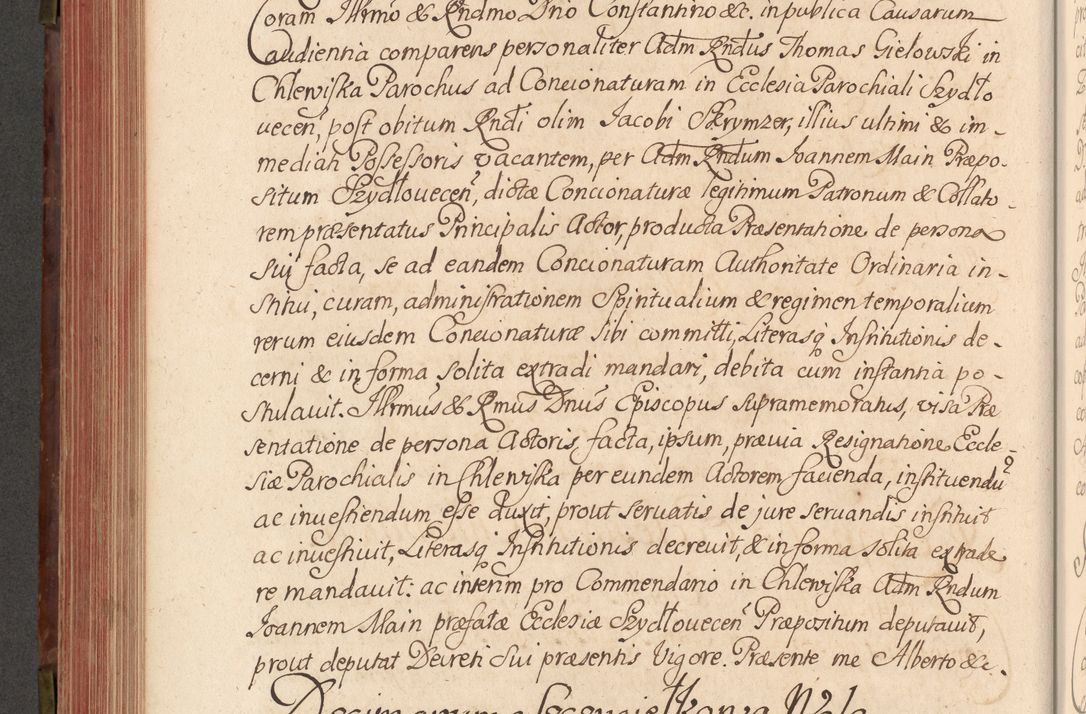 Coram Illrmo & Rndmo Dno Constantino &c. in publica Causarum
Caudientia comparens personaliter Adm Rndus Thomas Gielowski in
Chlewiska Parochus ad Concionaturam in Ecclesia Parochiali Szydło
vecen, post obitum Rndi olim Jacobi Skrymzer, illius ultimi & im-
mediati Possessoris vacantem, per Adm Rndum Joannem Main Præpo-
situm Szydłovecen, dictæ Concionaturæ legitimum Patronum & Collato-
rem præsentatus Principalis Actor, producta Præsentatione de persona
sui facta, se ad eandem Concionaturam Authoritate Ordinaria in-
stitui, curam, administrationem Spiritualium & regimen temporalium
rerum eiusdem Concionaturæ sibi committi, Literasq Institutionis de-
cerni & in forma solita extradi mandari, debita cum instantia po-
stulavit. Illrmus & Rmus Dnus Episcopus supramemoratus, visa Præ
sentatione de persona Actoris facta, ipsum, prævia Resignatione Eccle-
siæ Parochialis in Chlewiska per eundem Actorem facienda, instituendū
ac investiendum esse duxit, prout servatis de jure servandis instituit
ac investivit, Literasq Institutionis decrevit, & in forma solita extrade
re mandavit: ac interim pro Commendario in Chlewiska Adm Rndum
Joannem Main præfatæ Ecclesiæ Szydłovecen Præpositum deputavit,
prout deputat Decreti sui præsentis Vigore. Præsente me Alberto &c.